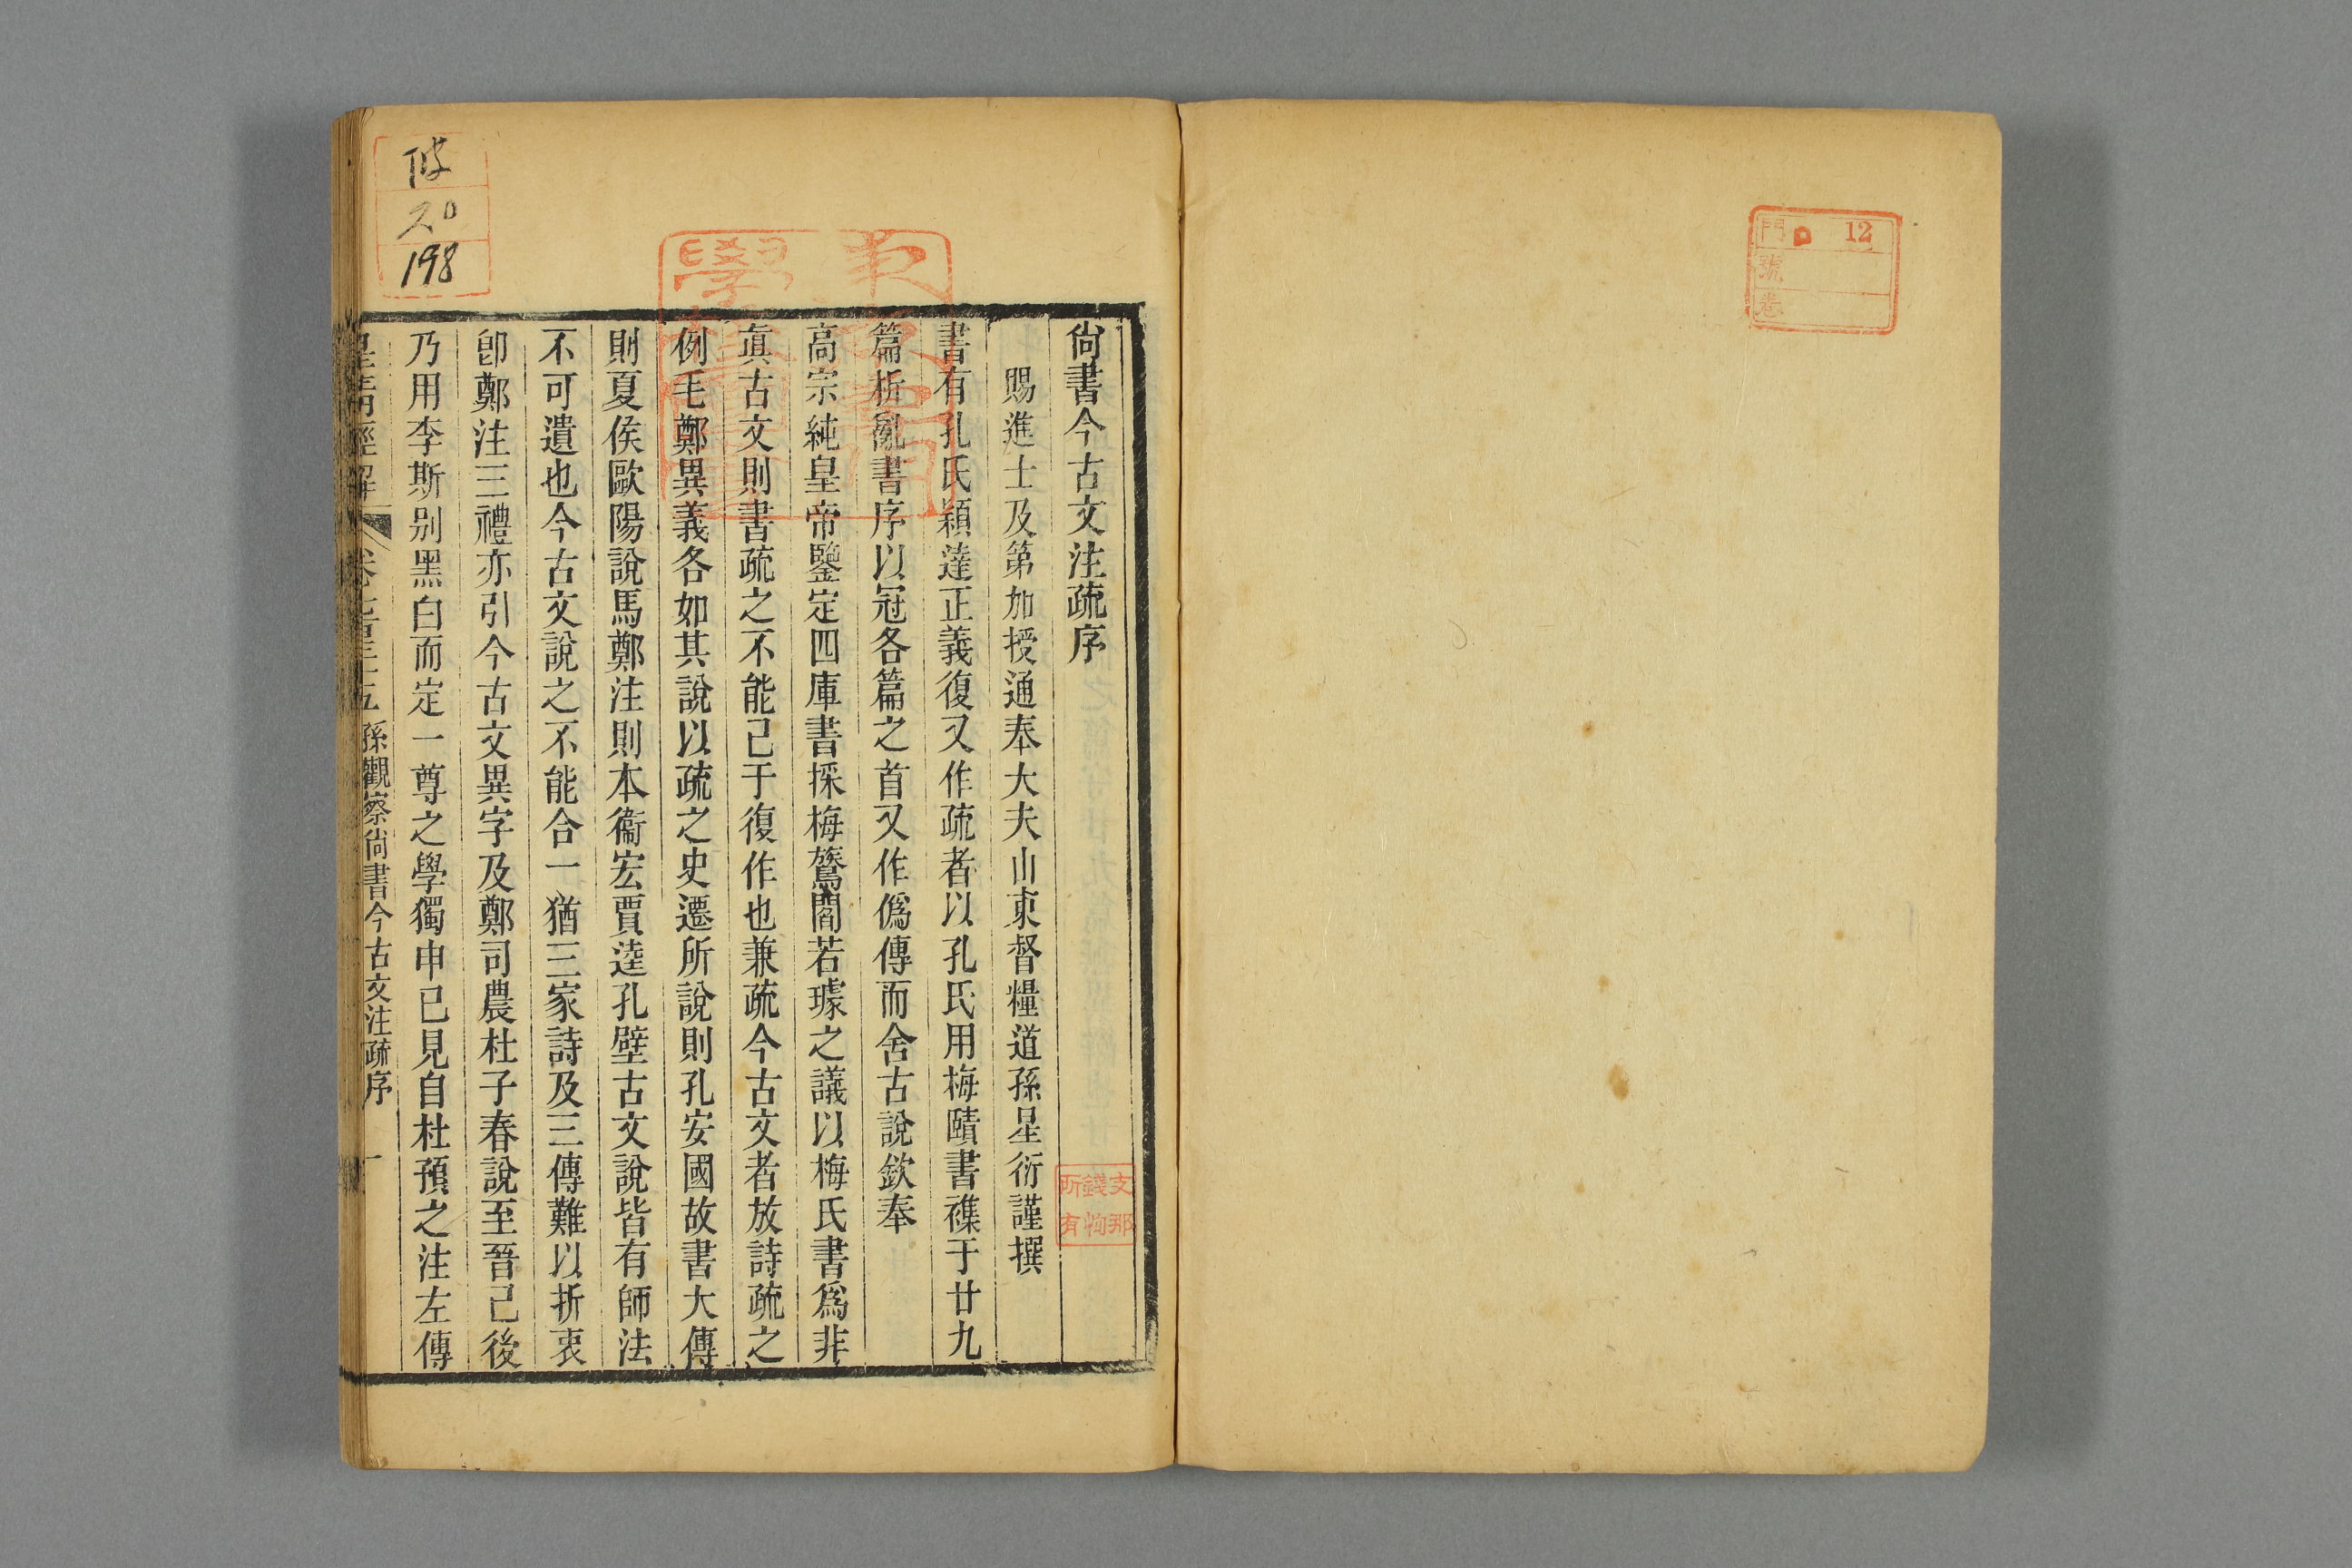 門 12
號
卷
尙書今古文注疏序
賜進士及第加授通奉大夫山東督糧道孫星衍謹撰
書有孔氏穎達正義復又作疏者以孔氏用梅賾書襍于廿九
篇析亂書序以冠各篇之首又作僞傳而舍古說欽奉
高宗純皇帝鑒定四庫書採梅鷟閻若璩之議以梅氏書爲非
眞古文則書疏之不能已于復作也兼疏今古文者放詩疏之
例毛鄭異義各如其說以疏之史遷所說則孔安國故書大傳
則夏侯歐陽說馬鄭注則本衞宏賈逵孔壁古文說皆有師法
不可遺也今古文說之不能合一猶三家詩及三傳難以折衷
卽鄭注三禮亦引今古文異字及鄭司農杜子春說至晉已後
乃用李斯別黑白而定一尊之學獨申已見自杜預之注左傳
皇清經解 卷七百三十五 孫觀察尙書今古文注疏序 一
支那
錢物
所有
198